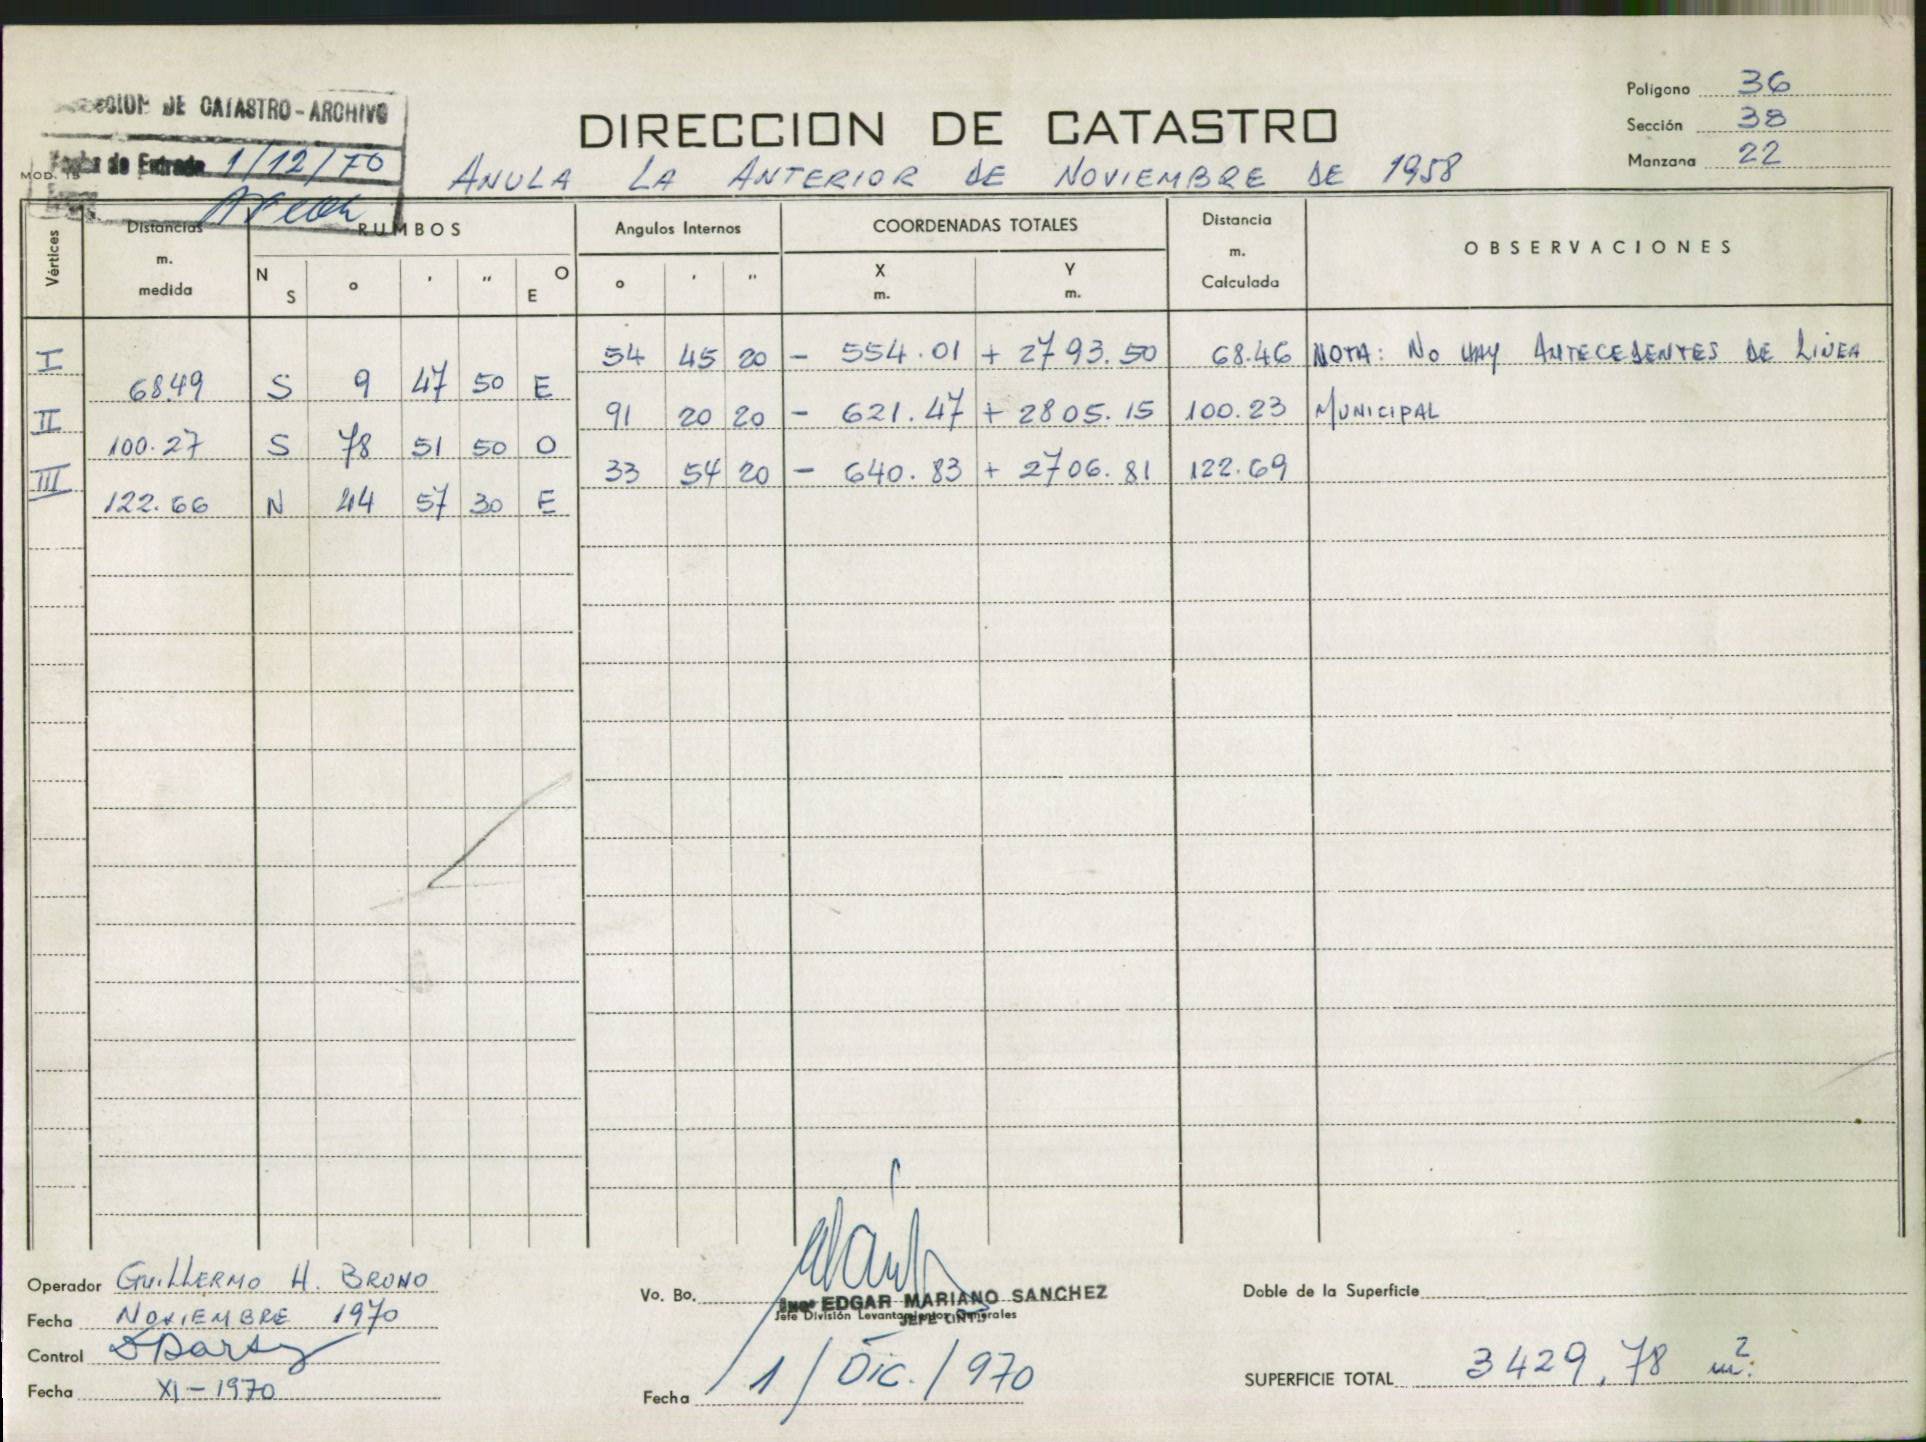 DE CATASTRO - ARCHIVO
Fecha de Entrada 1/12/70
MOD.
DIRECCION DE CATASTRO
ANULA LA ANTERIOR DE NOVIEMBRE DE 1958
Polígono 36
Sección 38
Manzana 22
Vértices Distancias m. medida RUMBOS N S ° ' " O E Angulos Internos ° ' " COORDENADAS TOTALES X m. Y m. Distancia m. Calculada OBSERVACIONES
I 54 45 20 - 554.01 + 2793.50 68.46 NOTA: No HAY ANTECEDENTES DE LINEA
68.49 S 9 47 50 E
II 91 20 20 - 621.47 + 2805.15 100.23 MUNICIPAL
100.27 S 78 51 50 O
III 33 54 20 - 640.83 + 2706.81 122.69
122.66 N 44 57 30 E
Operador GUILLERMO H. BRUNO
Fecha NOVIEMBRE 1970
Control
Fecha XI - 1970
Vo. Bo.
Ingº EDGAR MARIANO SANCHEZ
Jefe División Levantamientos Generales
Fecha 1 / DIC. / 970
Doble de la Superficie
SUPERFICIE TOTAL 3429,78 m².